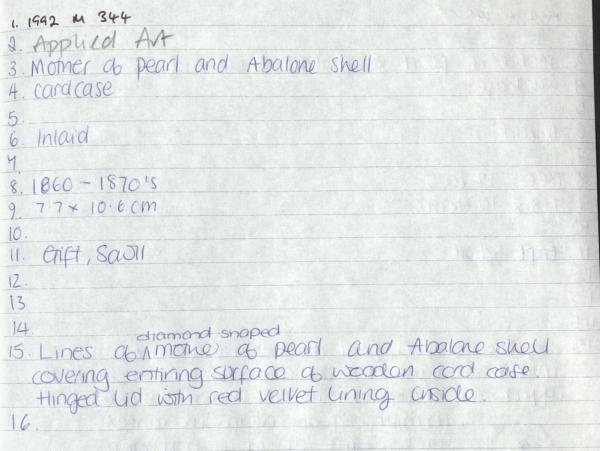 1. 1992 M 344
2. Applied Art
3. Mother of pearl and Abalone shell
4. cardcase
5.
6. Inlaid
7.
8. 1860 - 1870's
9. 7.7 x 10.6 cm
10.
11. Gift,
12.
13
14
diamond shaped
15. Lines of ^ mother of pearl and Abalone shell
covering entiring surface of wooden card case.
Hinged lid with red velvet lining inside.
16.